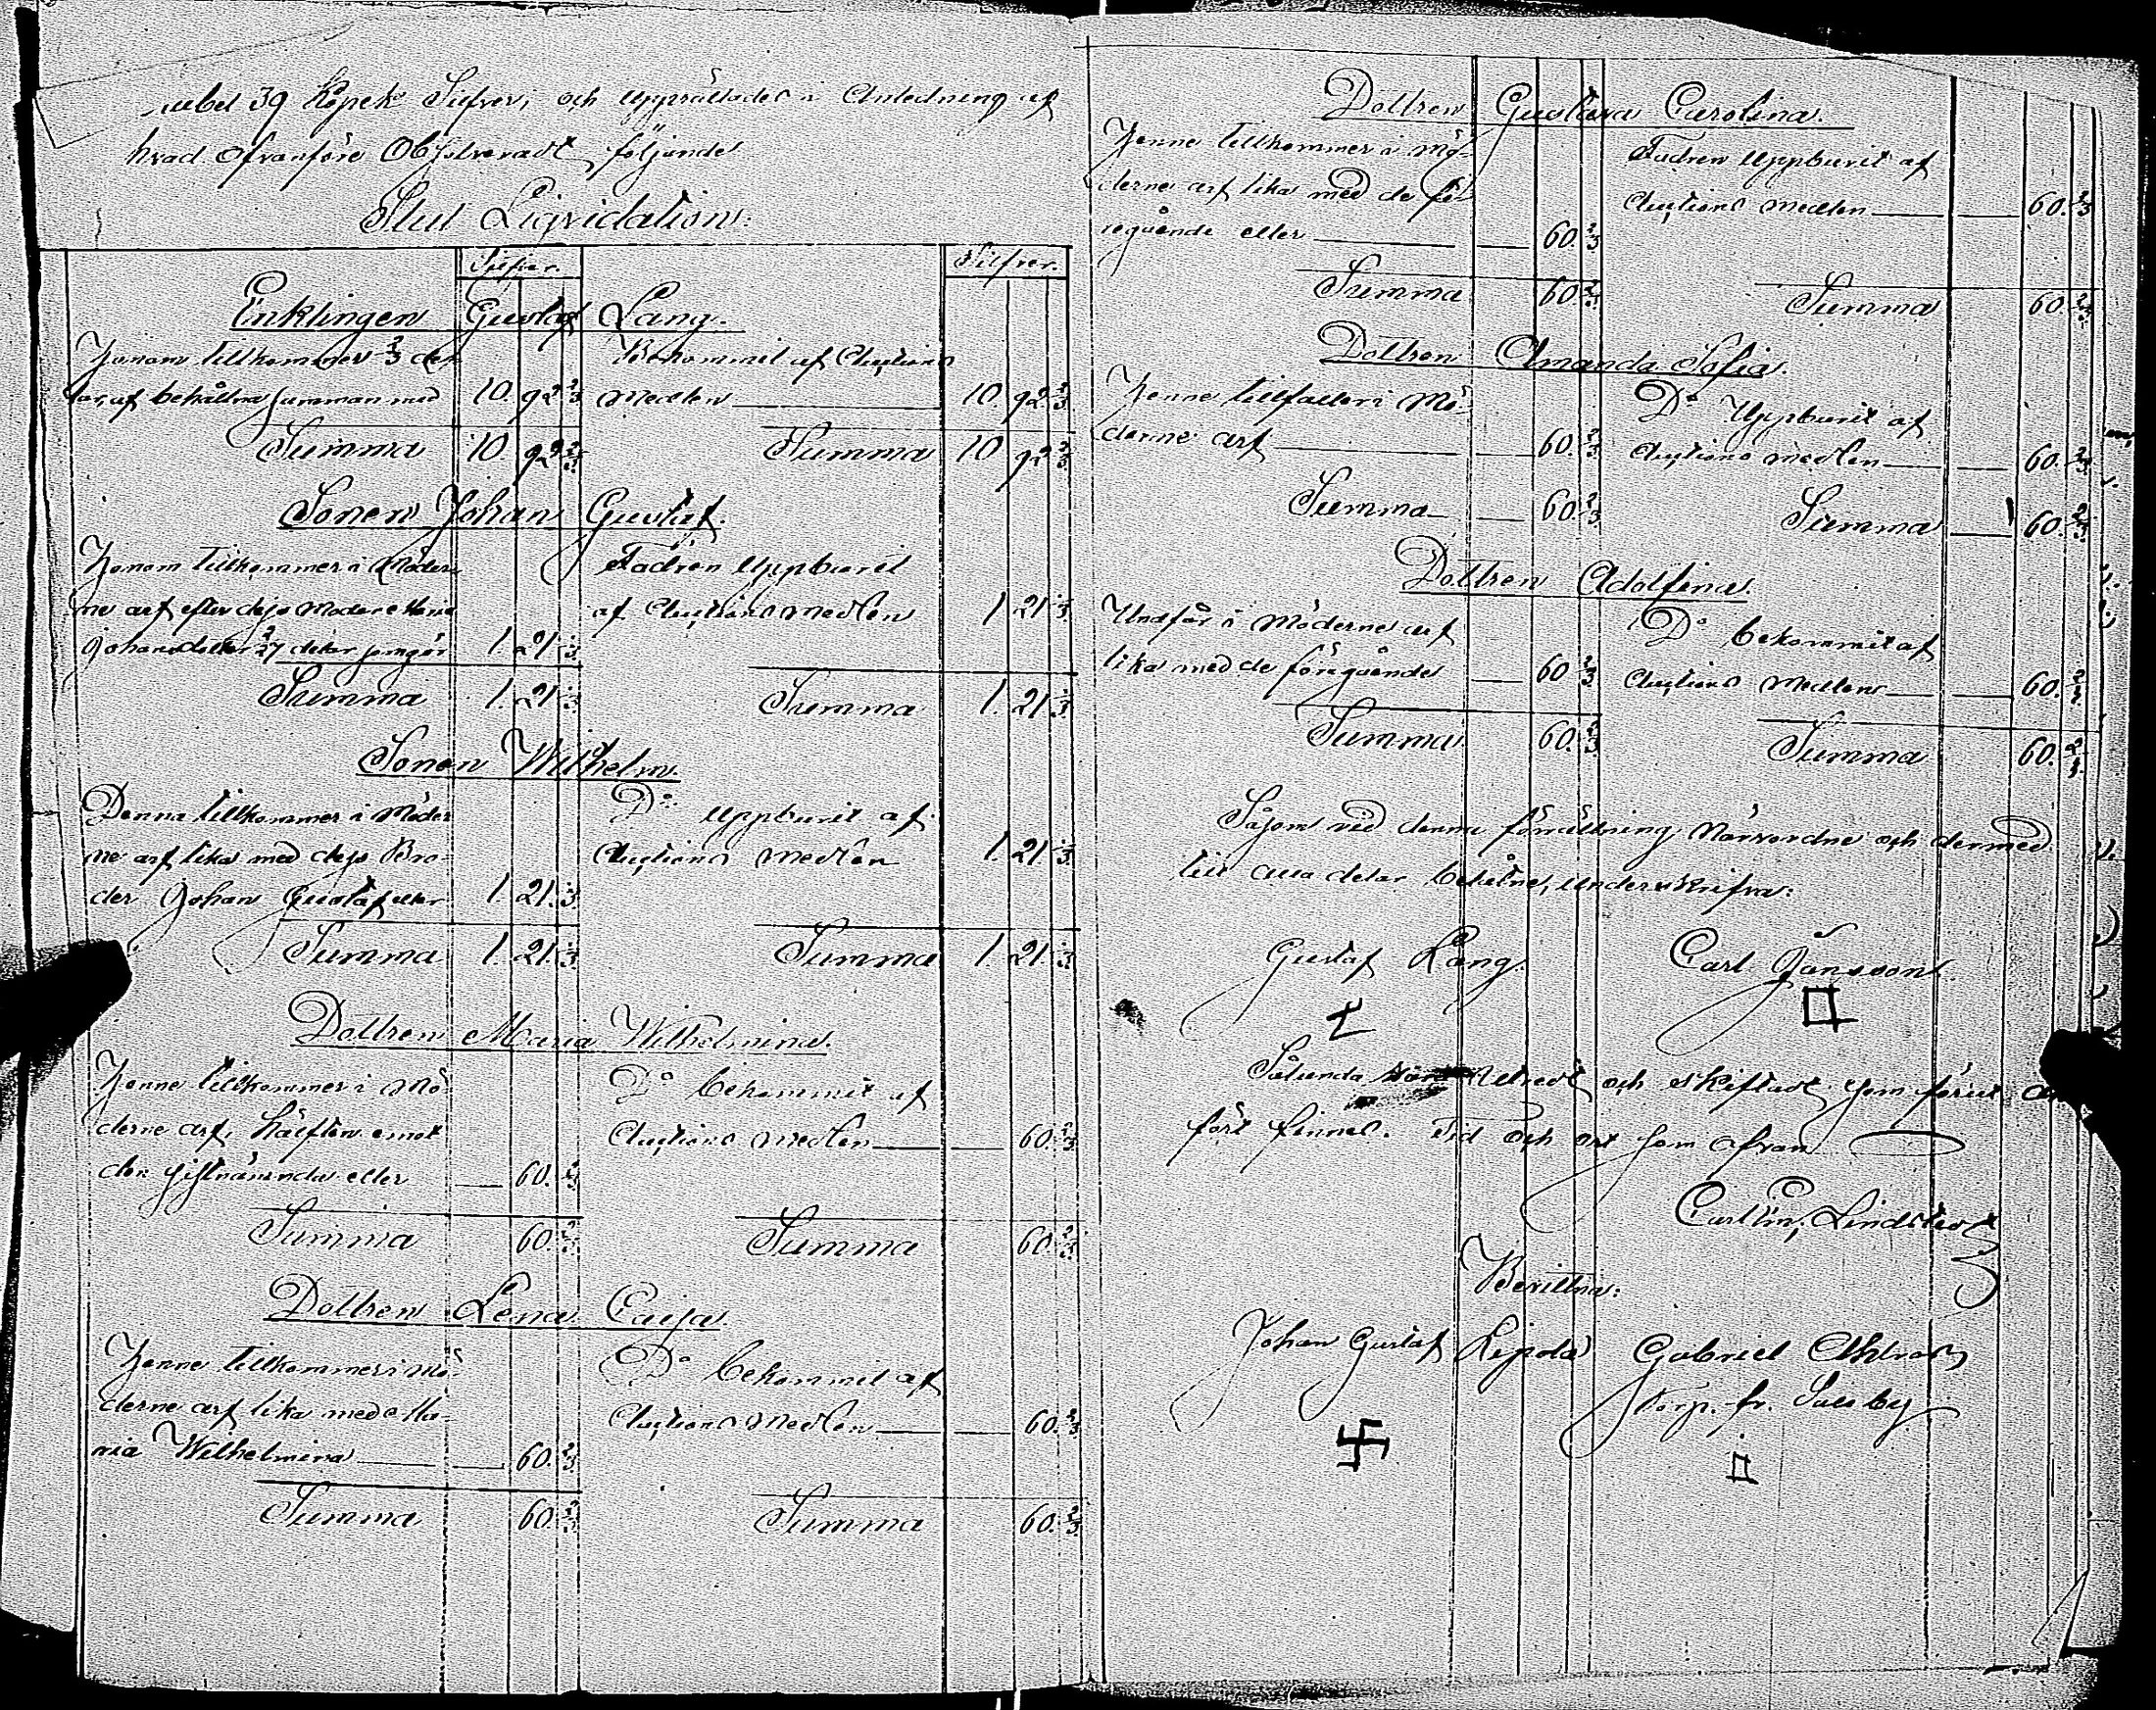 rubel 39 Kopek Silfver; och upprättades i Anledning af
hvad ofvanföre Observeradt följande
Slut Liqvidation.
Silfver. Silfver.
Enklingen Gustaf Lång.
Honom tillkommer 2/3 de-
lar, af behållna summan med 10. 92 2/3
Bekommit af Auctions
Medlen 10 92 2/3
Summa 10 92 2/3
Summa 10 92 2/3
Sonen Johan Gustaf.
Honom tillkommer i Möder-
ne arf efter dess Moder Maria
Johansdotter 2/7 delar som gör 1. 21 1/3
Fadren Uppburit
af Auctions medlen 1. 21 1/3
Summa 1. 21 1/3
Summa 1. 21 1/3
Sonen Wilhelm.
Denna tillkommer i Möder
ne arf lika med dess Bro-
der Johan Gustaf eller 1. 21. 1/3
Do uppburit af
Auctions Medlen 1. 21 1/3
Summa 1. 21. 1/3
Summa 1. 21 1/3
Dottren Maria Wilhelmina.
Henne tillkommer i Mö-
derne arf, hälften emot
den sistnämnda eller 60. 2/3
Do bekommit af
Auctions Medlen 60. 2/3
Summa 60. 2/3
Summa 60. 2/3
Dottren Lena Caisa.
Henne tillkommer i Mö-
derne arf lika med Ma-
ria Wilhelmina 60. 2/3
Do bekommit af
Auctions Medlen 60. 2/3
Summa 60. 2/3
Summa 60. 2/3
Dottren Gustava Carolina.
Henne tillkommer i Mö-
derne arf lika med de fö-
regående eller 60. 2/3
Fadren Uppburit af
Auctions Medlen 60. 2/3
Summa 60. 2/3
Summa 60. 2/3
Dottren Amanda Sofia.
Henne tillfaller i Mö-
derne arf 60. 2/3
Do Uppburit af
Auctions medlen 60. 2/3
Summa 60. 2/3
Summa 60. 2/3
Dottren Adolfina.
Undfår i Möderne arf
lika med de föregående 60 2/3
Do bekommit af
Auctions Medlen 60. 2/3
Summa 60. 2/3
Summa 60. 2/3
Såsom vid denna förrättning Närvordne och dermed
till alla delar belåtne, underskrifva:
Gustaf Lång. Carl Jansson.
Sålunda Utredt och skiftadt som förut an
fört finnes. Tid och ort som ofvan
Lindstedt
Bevittna:
Johan Gustaf Gabriel
Torp. fr.